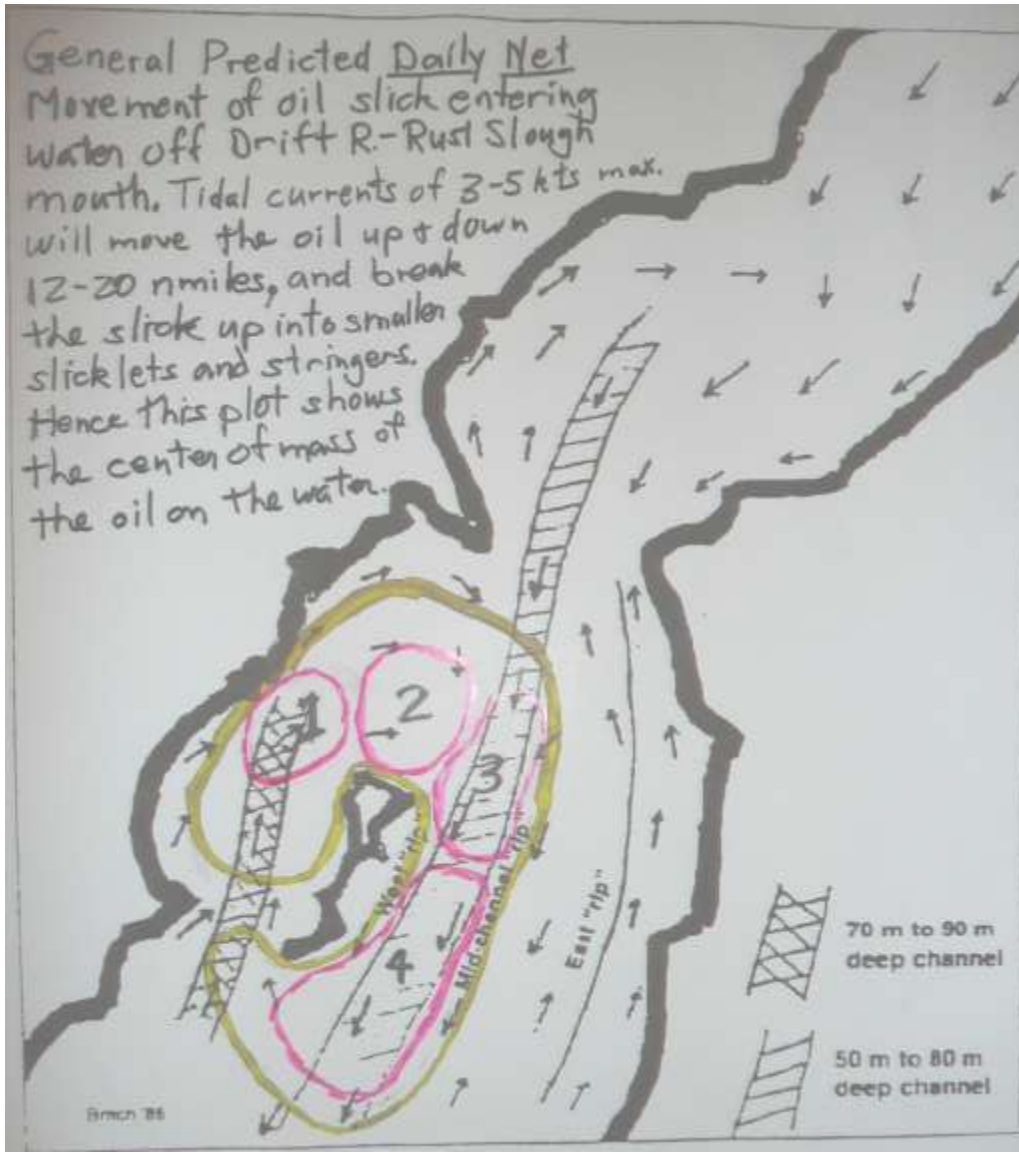 General Predicted Daily Net
Movement of oil slick entering
water off Drift R.-Rust Slough
mouth. Tidal currents of 3-5 kts max.
will move the oil up & down
12-20 nmiles, and break
the slick up into smaller
slicklets and stringers.
Hence this plot shows
the center of mass of
the oil on the water.
1
2
3
4
West "rip"
Mid-channel "rip"
East "rip"
70 m to 90 m
deep channel
50 m to 80 m
deep channel
'86